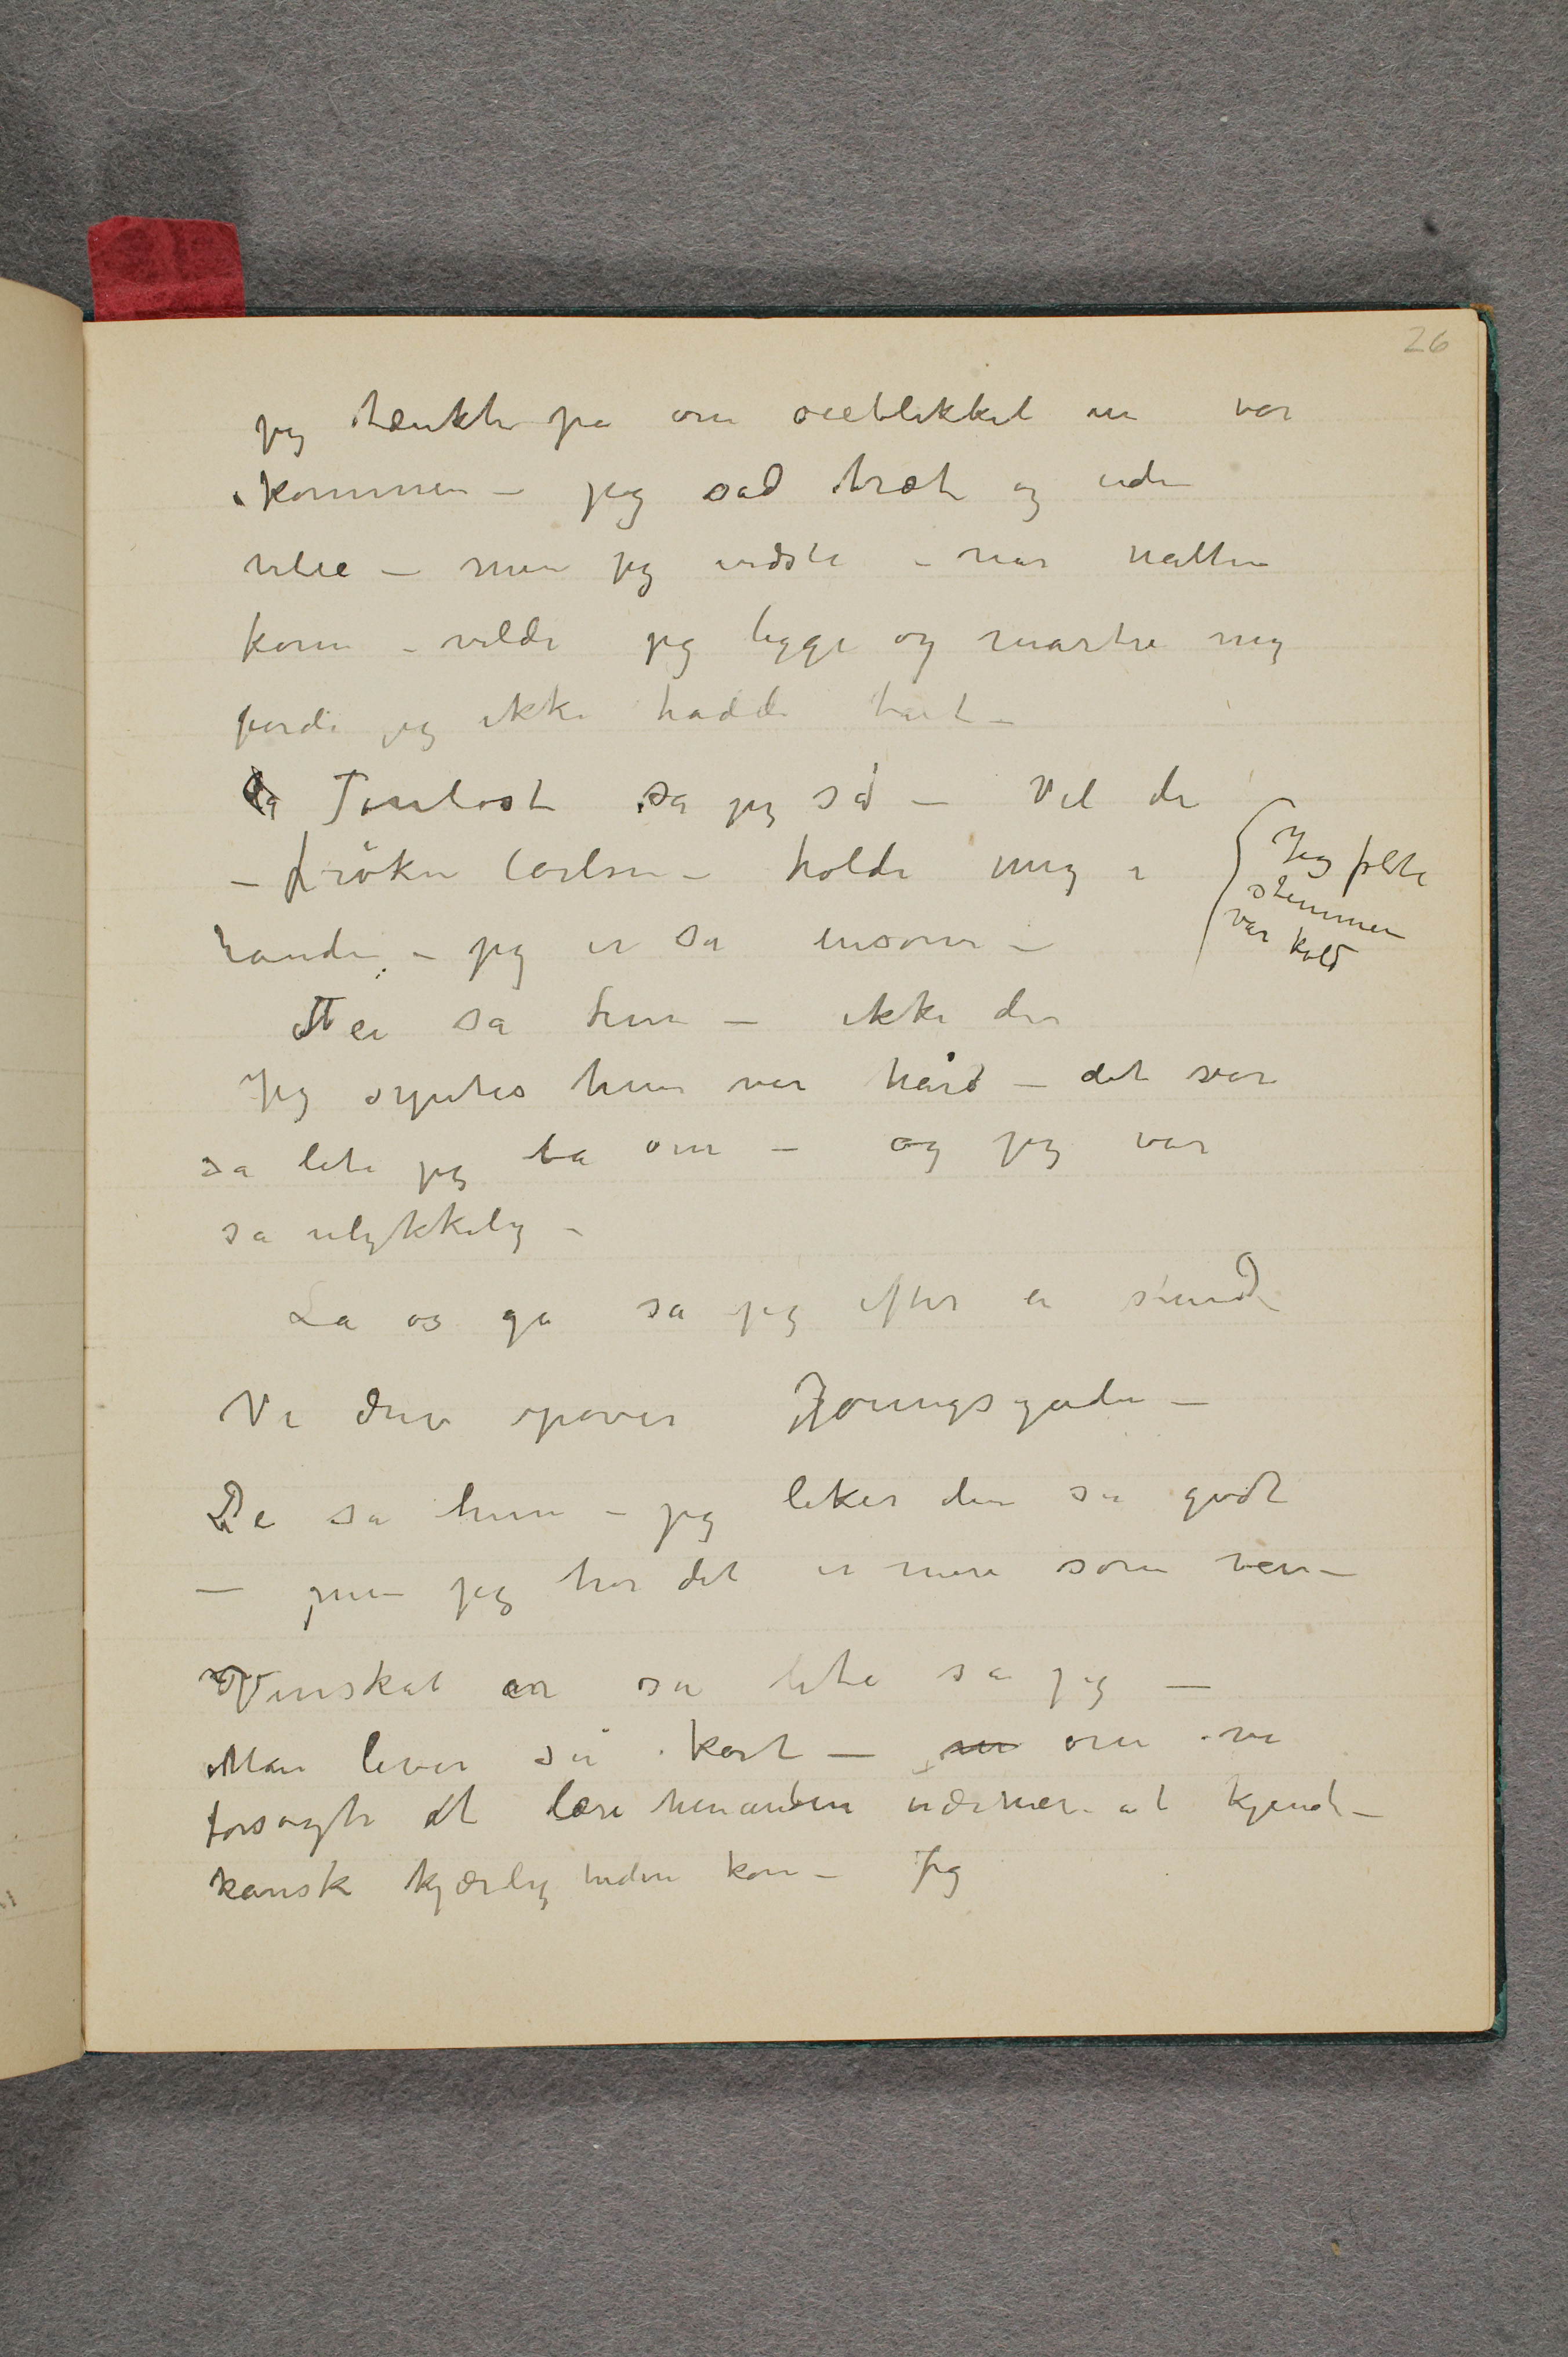 26
jeg tænkte på om øieblikket nu var
kommen – jeg sad træt og uden
vilie – men jeg vidste – når natten
kom – vilde jeg ligge og martre mig
fordi jeg ikke hadde talt –
Tonløst sa jeg så – Vil de
– frøken Carlsen – holde mig i
hånden – jeg er så ensom –
Jeg følte
stemmen
var kold
Nei sa hun – ikke der
Jeg syntes hun var hård – det var
så lite jeg ba om – og jeg var
så ulykkelig –
La os gå sa jeg efter en stund
Vi drev opover
De sa hun – jeg liker dem så godt
– men jeg tror det er mere som ven –
Venskab er så lite sa jeg –
Man lever så kort – om vi
forsøgte at lære hinanden nærmere at kjende –
kanske kjærligheden kom – Jeg